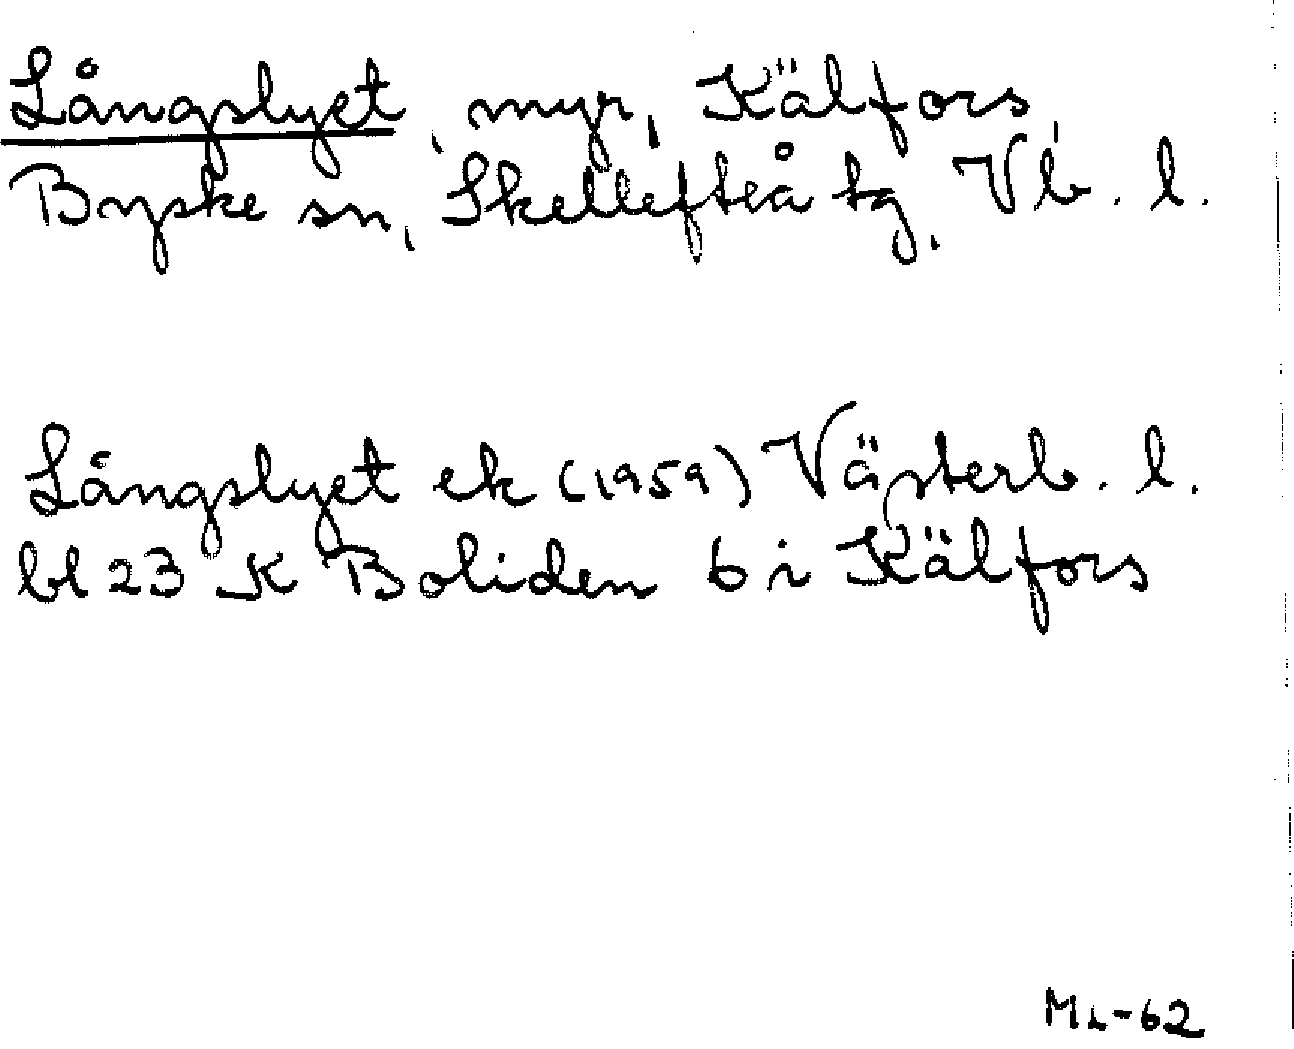 Långslyet, myr, Kälfors,
Byske sn, Skellefteå tg, Vb. l.
Långslyet ek (1959) Västerb. l.
bl 23 K Boliden 6 i Kälfors
Mi-62